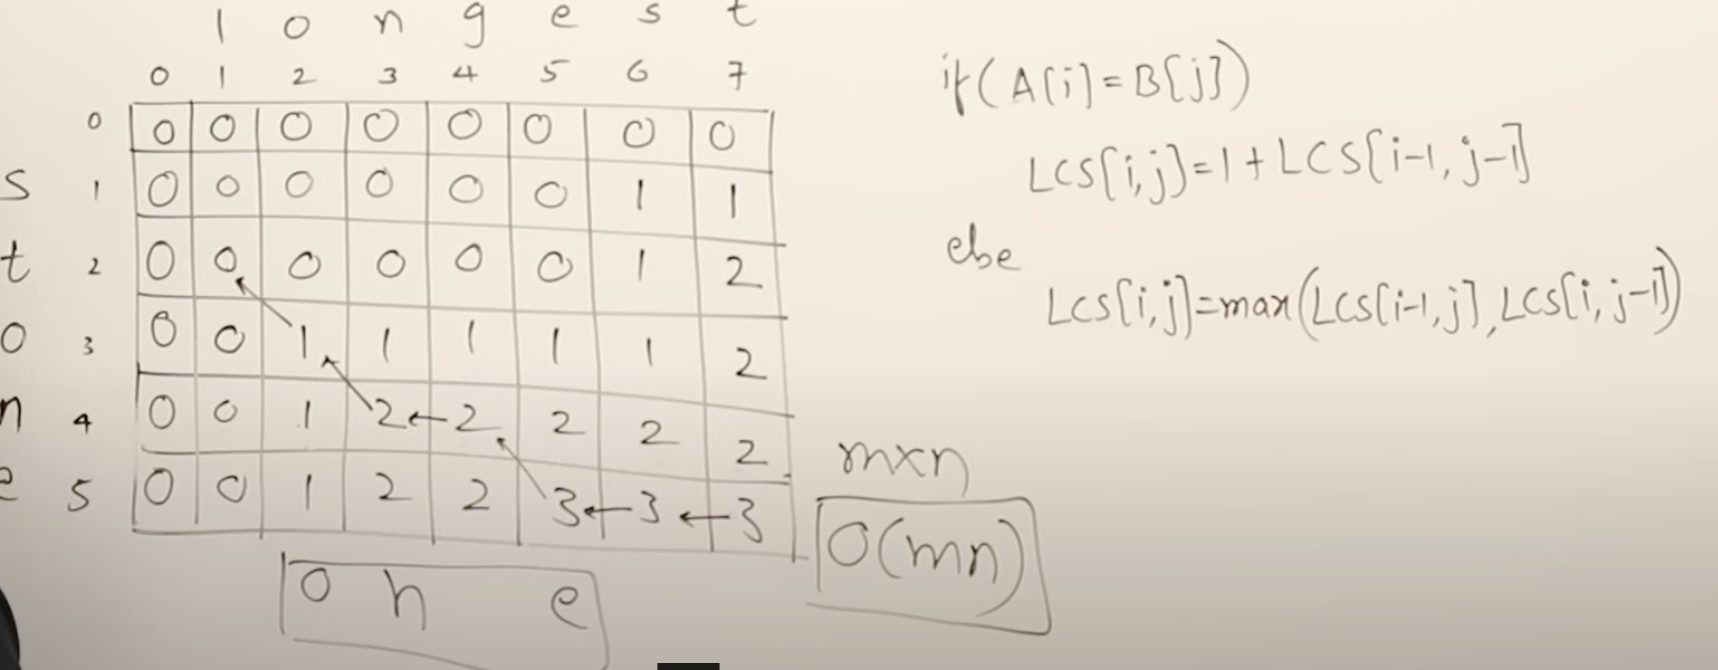 l o n g e s t
0 1 2 3 4 5 6 7
0 0 0 0 0 0 0 0 0
s 1 0 0 0 0 0 0 1 1
t 2 0 0 0 0 0 0 1 2
o 3 0 0 1 1 1 1 1 2
n 4 0 0 1 2 ← 2 2 2 2
e 5 0 0 1 2 2 3 ← 3 ← 3
o n e
if (A[i] = B[j])
LCS[i,j] = 1 + LCS[i-1, j-1]
else
LCS[i,j] = max(LCS[i-1,j], LCS[i, j-1])
m×n
O(mn)